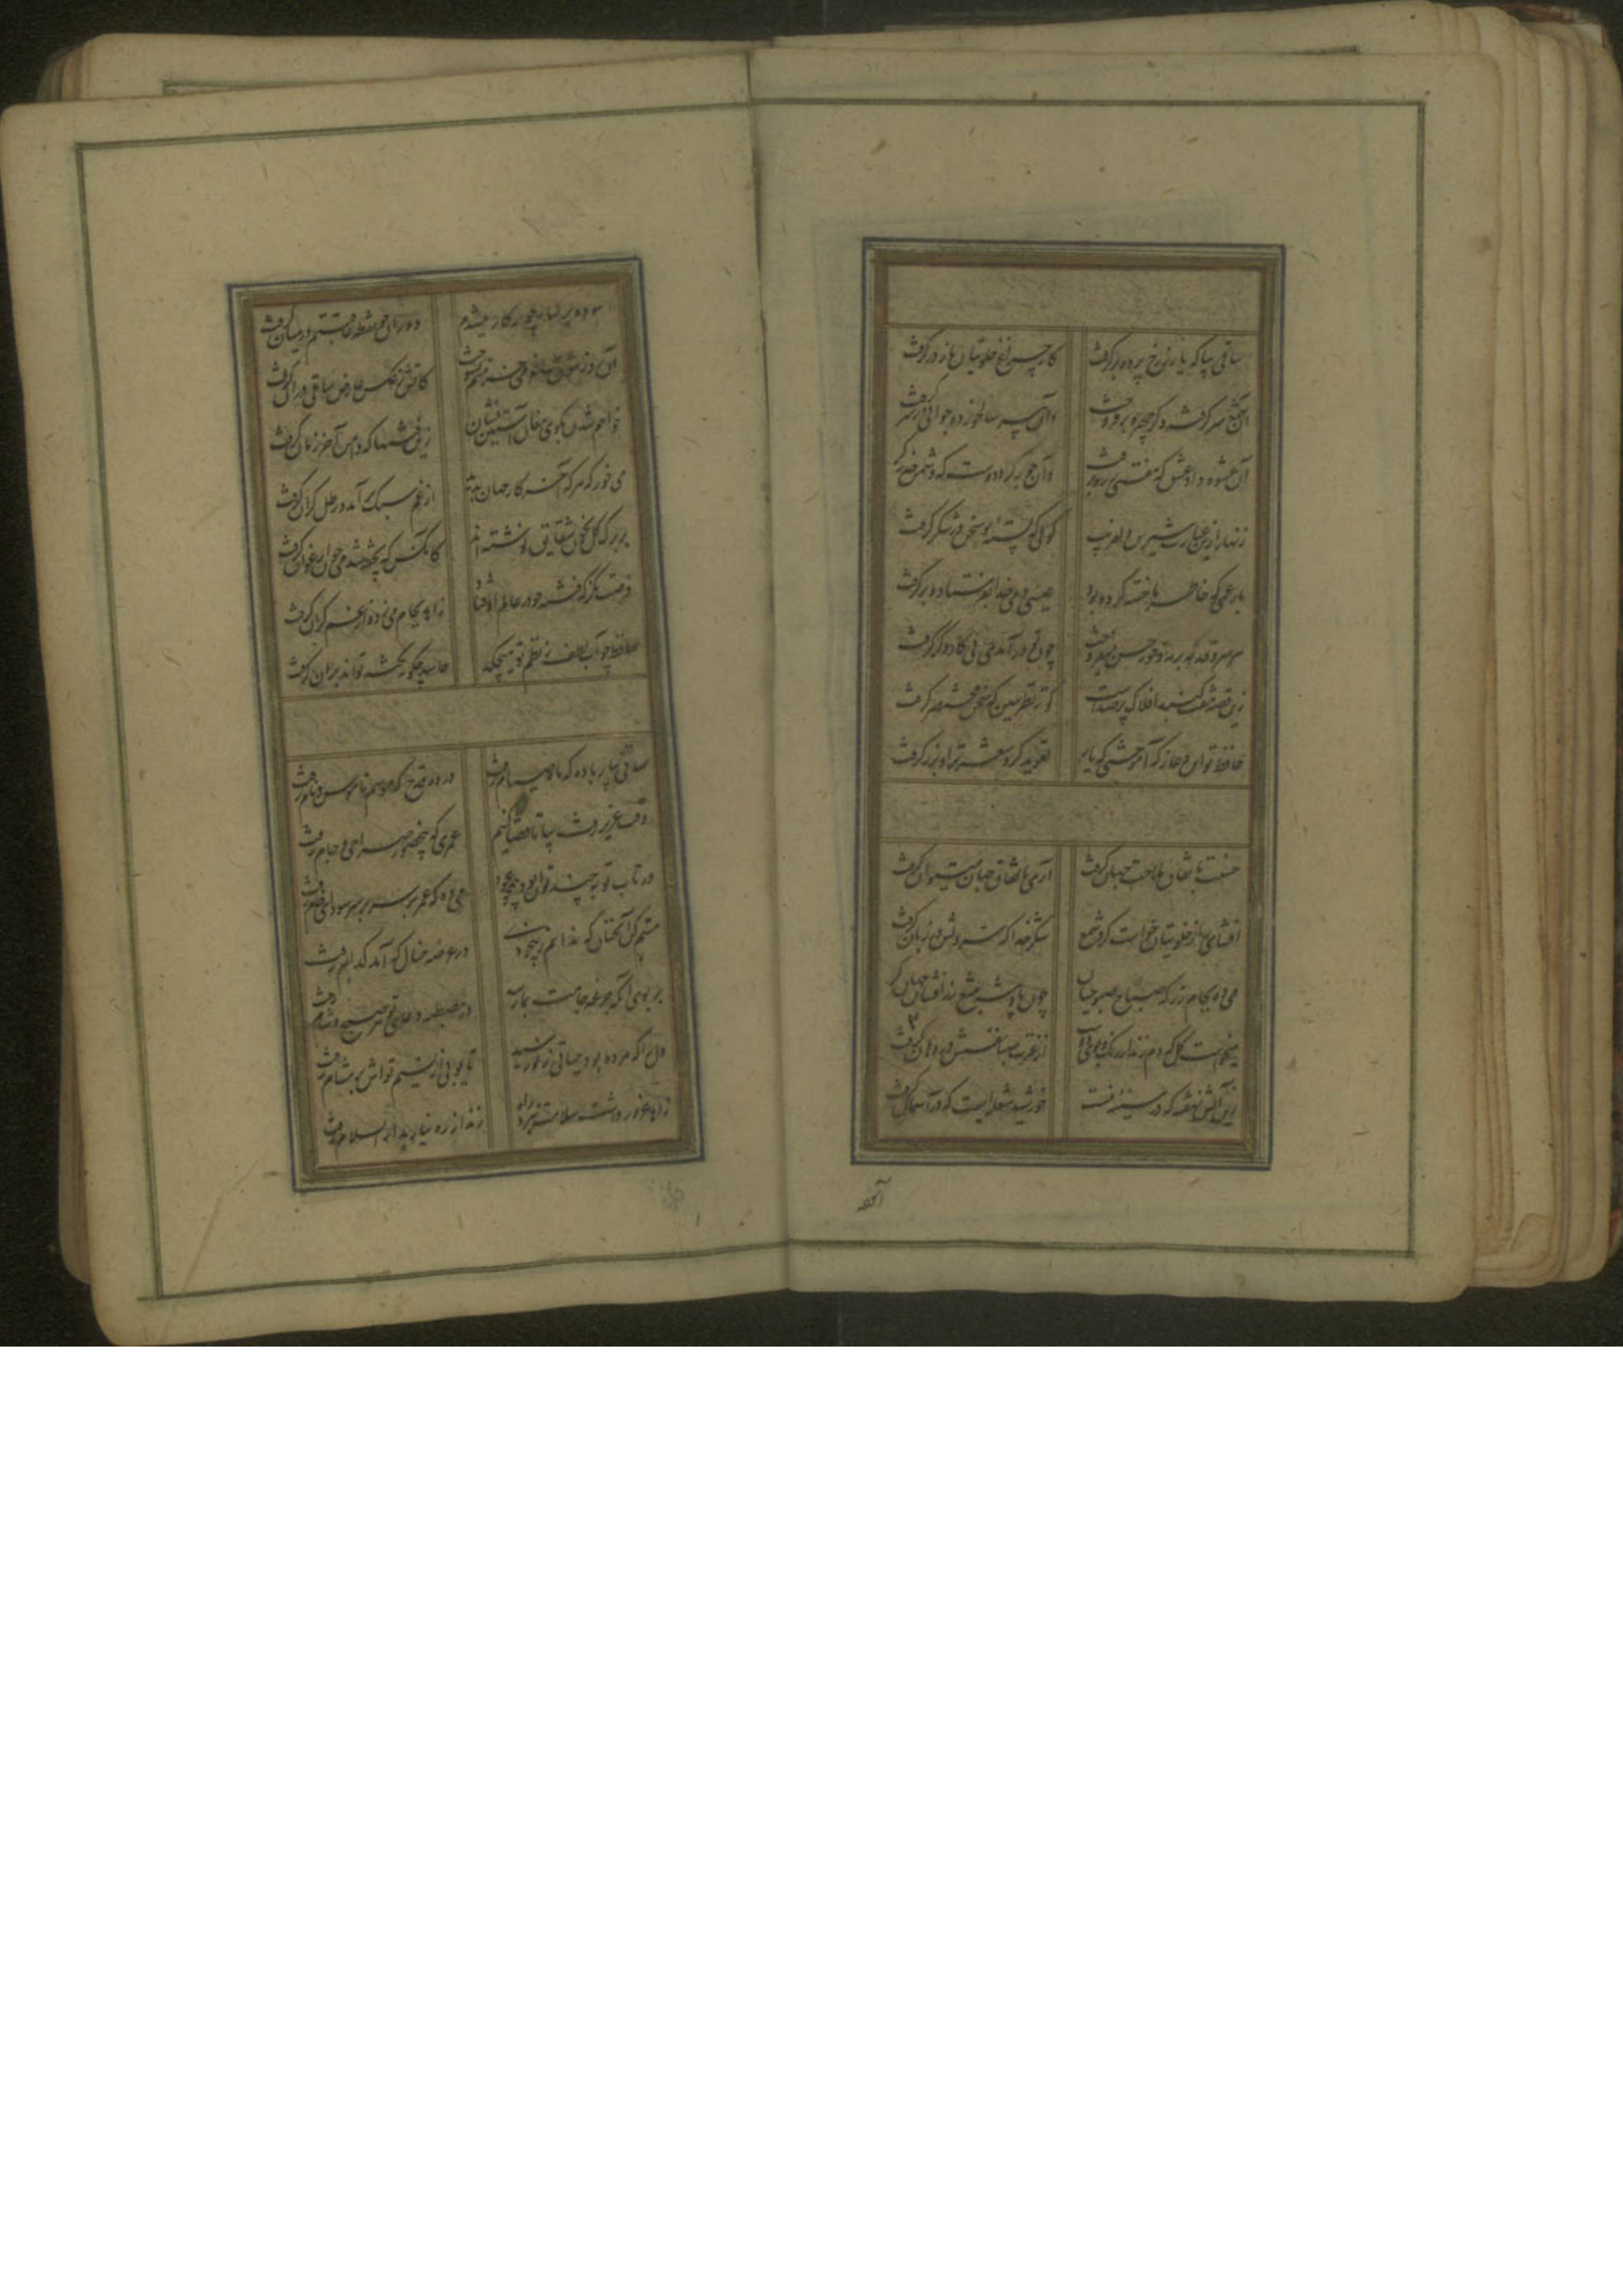 ساقی بیا که یار ز رخ پرده برگرفت کار چراغ خلوتیان باز درگرفت
آن شمع سرگرفته دگر چهره برفروخت وآن پیر سالخورده جوانی ز سر گرفت
آن عشوه داد عشق که مفتی ز ره برفت وآن لطف کرد دوست که دشمن حذر گرفت
زنهار ازین عبارت شیرین دلفریب گویی که پسته تو سخن در شکر گرفت
بار غمی که خاطر ما خسته کرده بود عیسی دمی خدا بفرستاد و برگرفت
هر سروقد که بر مه و خور حسن میفروخت چون تو درآمدی پی کار دگر گرفت
زین قصه هفت گنبد افلاک پر صداست کوته نظر ببین که سخن مختصر گرفت
حافظ تو این دعا ز که آموختی که یار تعویذ کرد شعر ترا و بزر گرفت
حسنت باتفاق ملاحت جهان گرفت آری باتفاق جهان میتوان گرفت
افشای راز خلوتیان خواست کرد شمع شکر خدا که سر دلش در زبان گرفت
می ده بجام زر که صباح صبوحیان چون پادشه بتیغ زرافشان جهان گرفت
میخواست گل که دم زند از رنگ و بوی دوست از غیرت صبا نفسش در دهان گرفت
زین آتش نهفته که در سینه منست خورشید شعله ایست که در آسمان گرفت
آسوده
آسوده بر کنار چو پرکار میشدم دوران چو نقطه عاقبتم در میان گرفت
آن روز شوق ساغر می خرمنم بسوخت کاتش ز عکس عارض ساقی در آن گرفت
خواهم شدن بکوی مغان آستین فشان زین فتنها که دامن آخر زمان گرفت
می خور که هر که آخر کار جهان بدید از غم سبک برآمد و رطل گران گرفت
بر برگ گل بخون شقایق نوشته اند کانکس که پخته شد می چون ارغوان گرفت
فرصت نگر که فتنه چو در عالم اوفتاد زاهد بجام می زد و از غم کران گرفت
حافظ چو آب لطف ز نظم تو میچکد حاسد چگونه نکته تواند بر آن گرفت
ساقی بیار باده که ماه صیام رفت در ده قدح که موسم ناموس و نام رفت
وقت عزیز رفت بیا تا قضا کنیم عمری که بی حضور صراحی و جام رفت
در تاب توبه چند توان سوخت همچو عود می ده که عمر در سر سودای خام رفت
مستم کن آنچنان که ندانم ز بیخودی در عرصه خیال که آمد کدام رفت
بر بوی آنکه جرعه جامت بما رسد در مصطبه دعای تو هر صبح و شام رفت
دل را که مرده بود حیاتی ز نو رسید تا بویی از نسیم تواش بر مشام رفت
زاهد غرور داشت سلامت نبرد راه رند از ره نیاز بدار السلام رفت